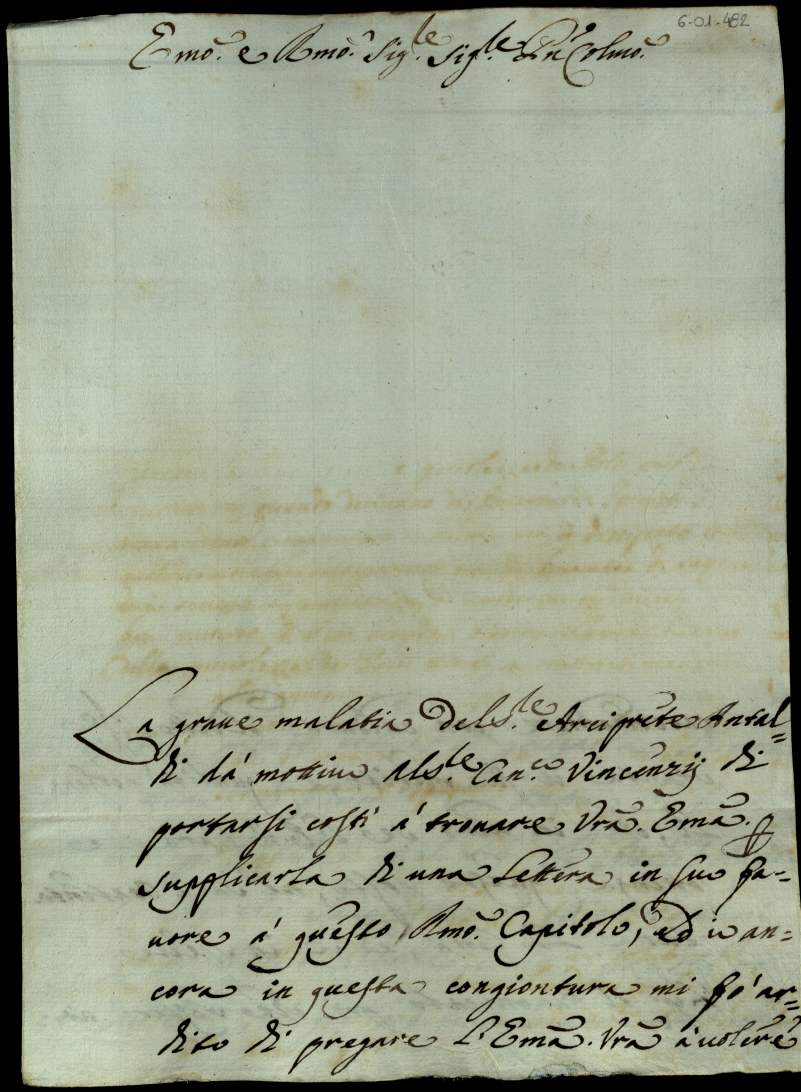 6-01-482
Emo. e Rmo. Sig.re Sig.re Pn Colmo.
La graue malatia del S.re Arciprete Antal=
di dà mottiuo al S.re Can.co Vincenzij di
portarsi costì à trouare Vrã. Emã. p
supplicarla di una lettera in suo fa=
uore à questo Rmo. Capitolo, ed io an=
cora in questa congiontura mi fò ar=
dito di pregare l'Emã. Vrã à uolere